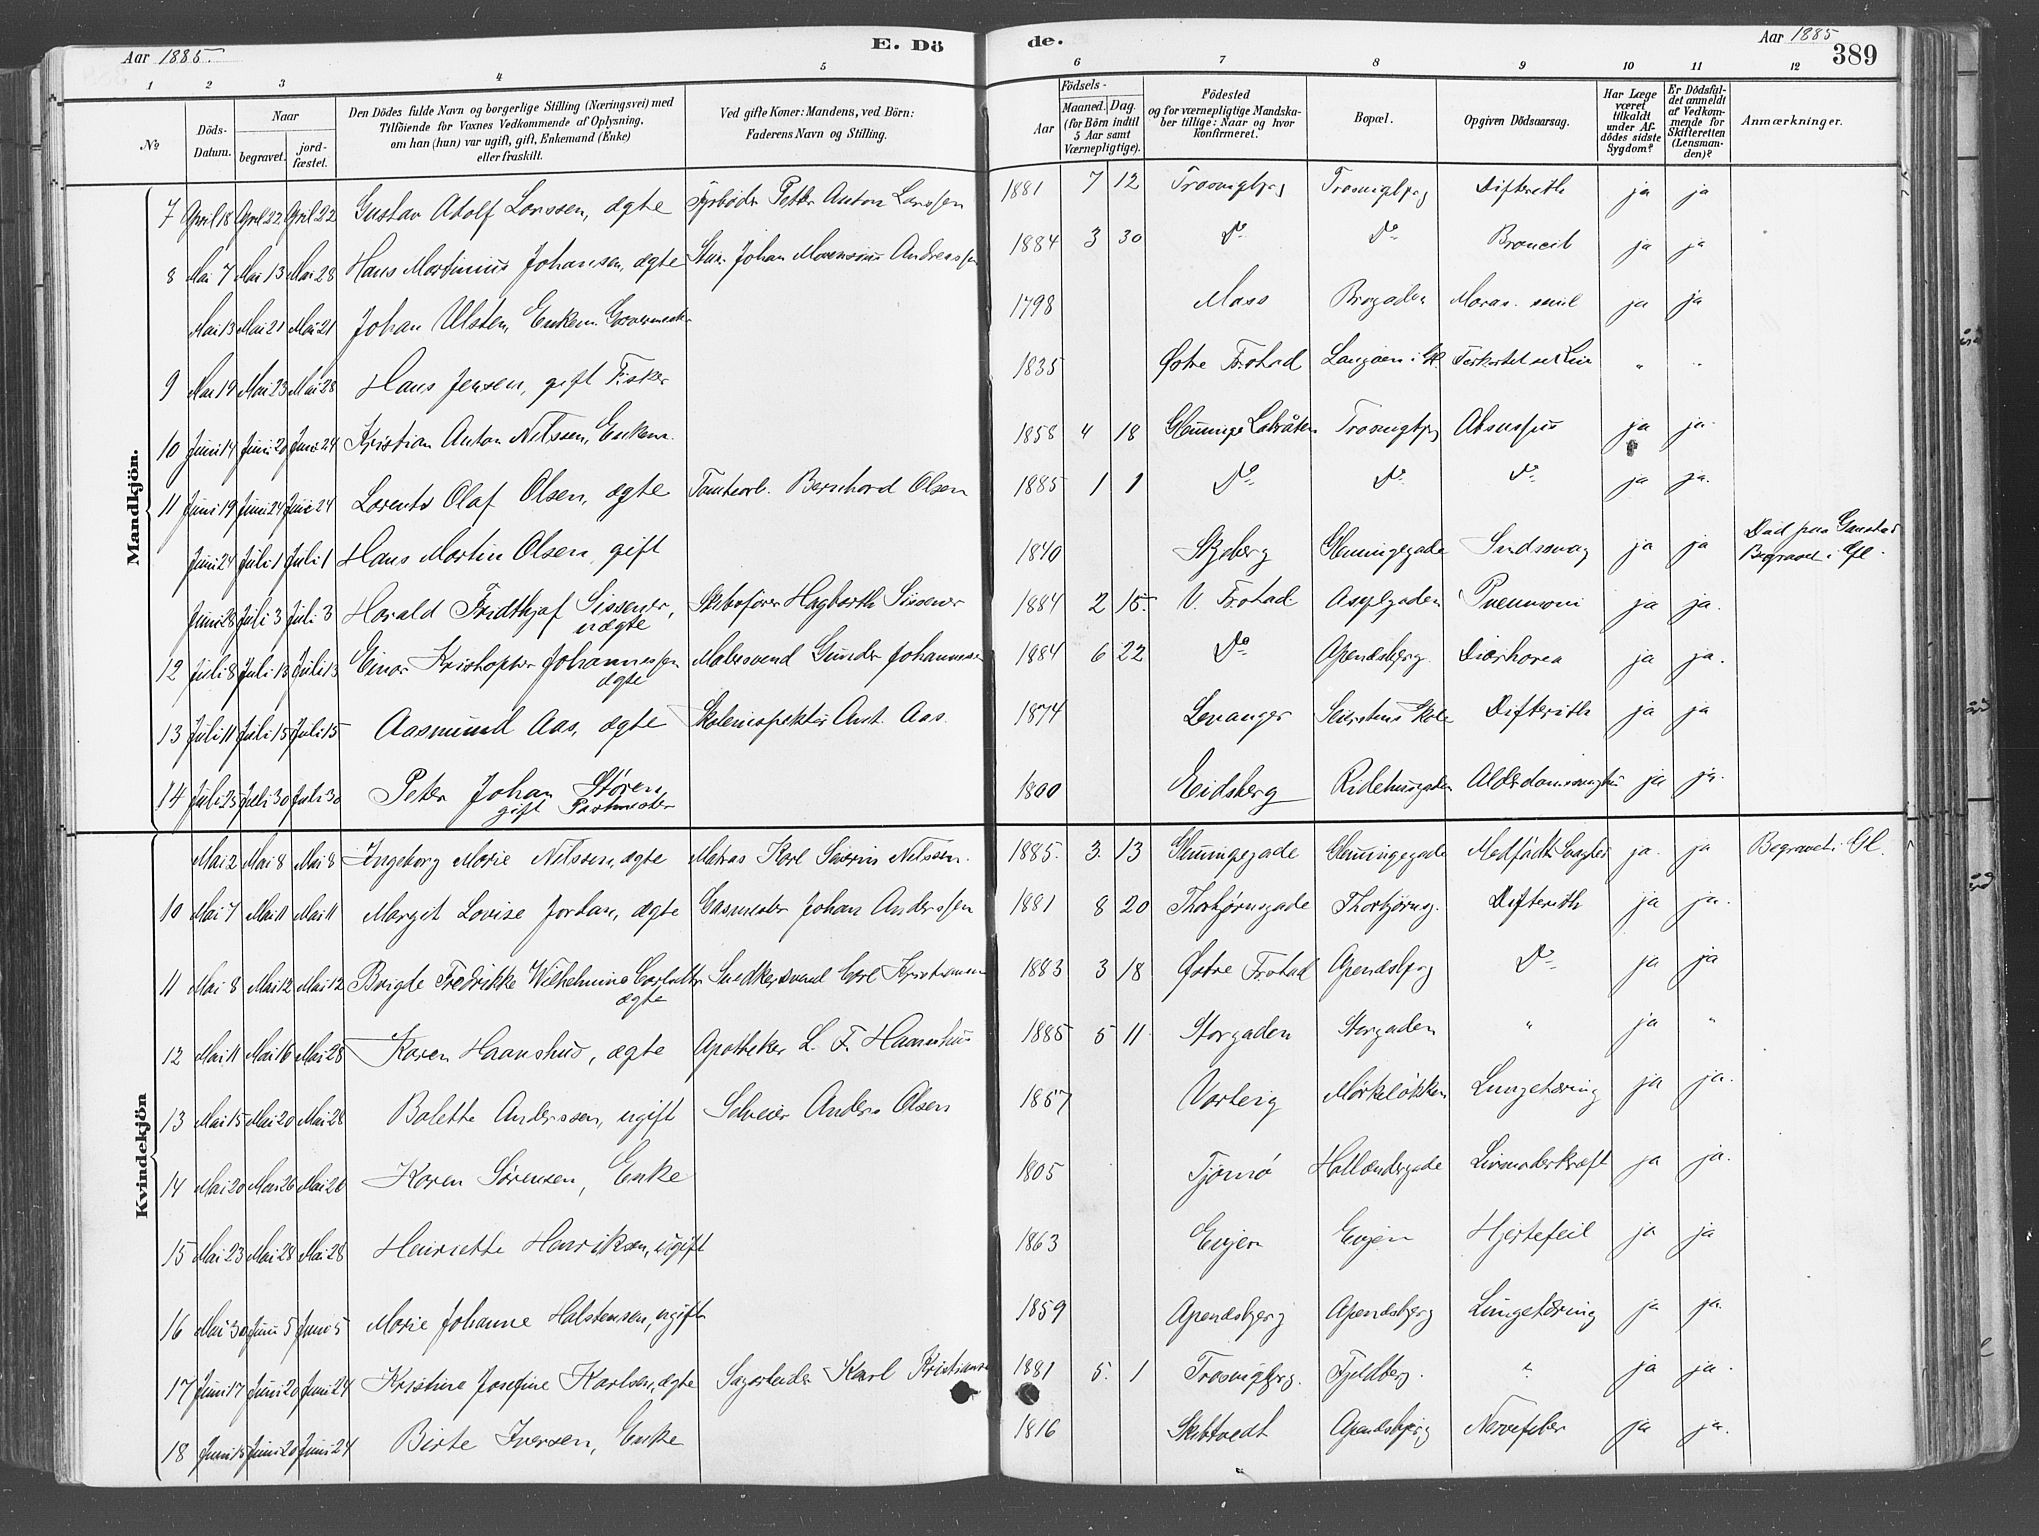 Aar 1885.
E. Dö
de.
Aar 1885
389
1 2 3 4 5 6 7 8 9 10 11 12
No
Döds-Datum.
Naar
begravet.
jord-fæstet.
Den Dödes fulde Navn og borgerlige Stilling (Næringsvei) med
Tilföiende for Voxnes Vedkommende af Oplysning,
om han (hun) var ugift, gift, Enkemand (Enke)
eller fraskilt.
Ved gifte Koner: Mandens, ved Börn:
Faderens Navn og Stilling.
Födsels-
Aar
Maaned.
Dag.
(for Börn indtil
5 Aar samt
Værnepligtige).
Födested
og for værnepligtige Mandska-
ber tillige: Naar og hvor
konfirmeret.
Bopæl.
Opgiven Dödsaarsag.
Har Læge
været
tilkaldt
under Af-
dödes sidste
Sygdom?
Er Dödsfal-
det anmeldt
af Vedkom-
mende for
Skifteretten
(Lensman-
den)?
Anmærkninger.
Mandkjön.
7 April 18 April 22 April 22 Gustav Adolf Larssen, ægte Fyrböder Petter Anton Larssen 1881 7 12 Difterith ja ja
8 Mai 7 Mai 13 Mai 28 Hans Martinius Johansen, ægte Johan Andreassen 1884 3 30 Do Do ja ja
Mai 13 Mai 21 Mai 21 Johan Ulsten, Enkem. 1798 Moss Brogaden ja ja
9 Mai 19 Mai 23 Mai 28 Hans Jensen, gift Fisker 1835 Østre " "
10 Juni 14 Juni 20 Juni 24 Kristian Anton Nilssen, Enkem. 1858 4 18 Glemminge ja ja
11 Juni 19 Juni 24 Juni 24 Lorents Olaf Olsen, ægte Tomtearb. Bernhard Olsen 1885 1 1 Do Do Do ja ja.
Juni 24 Juli 1 Juli 1 Hans Martin Olsen, gift 1840 Skjeberg Glemmingegade Sindssvag ja ja Död paa Gaustad
Begravet i Gl.
Juni 28 Juli 3 Juli 3 Harald Fridthjof Sissener, Skibsförer Hagbarth Sissener 1884 2 15. V. ja ja.
uægte
12 Juli 8 Juli 13 Juli 13 Einar Kristopher Johannessen Malersvend Gunder Johannessen 1884 6 22 Do Apenesbjerg Diarhorea ja ja.
ægte
13 Juli 11 Juli 15 Juli 15 Aasmund Aas, ægte Skoleinspektör Anst. Aas. 1874 Levanger Difterith ja ja
14 Juli 25 Juli 30 Juli 30 Peter Johan Støren, 1800 Eidsberg Ridehusgaden ja ja.
gift Postmester
Kvindekjön
Mai 2 Mai 8 Mai 8 Ingeborg Marie Nilssen, ægte Matros Karl Severin Nilssen. 1885. 3. 13 Glemmingegade Glemmingegade ja. ja Begravet i Gl.
10 Mai 7 Mai 11 Mai 11 Margit Lovise Jordan, ægte Gasmester Johan Anderssen 1881 8 20 Thorbjørnsgade Thorbjørnsg. Difterith ja ja.
11 Mai 8 Mai 12 Mai 12 Birgte Fredrikke Wilhelmine Snedkersvend Carl Kristiansen 1883 3 18 Østre Apenesbjerg Do ja ja
ægte
12 Mai 11 Mai 16 Mai 28 Karen Haanshus, ægte Apotheker L. F. Haanshus 1885 5 11 Storgaden Storgaden " ja "
13 Mai 15 Mai 20 Mai 28 Bolette Anderssen, ugift Selveier Anders Olsen 1857 Varteig Mørkeløkken Lungetæring ja ja.
14 Mai 20 Mai 26 Mai 28 Karen Sørensen, Enke 1805 Tjømø Hollændergade Livmoderkræft ja ja.
15 Mai 23 Mai 28 Mai 28 Henriette Henriksen, ugift 1863 Evjen Evjen Hjertefeil ja ja
16 Mai 30 Juni 5 Juni 5 Marie Johanne Halstensen, ugift 1859 Apenesbjerg Apenesbjerg Lungetæring ja ja.
17 Juni 17 Juni 20 Juni 24 Kristine Josefine Karlsen, ægte Sagarbeider Karl Kristiansen 1881 5. 1 Fjeldberg. " ja ja.
18 Juni 15 Juni 20 Juni 24 Birte Iversen, Enke 1816 Skibtvedt Apenesbjerg Nervefeber ja ja.